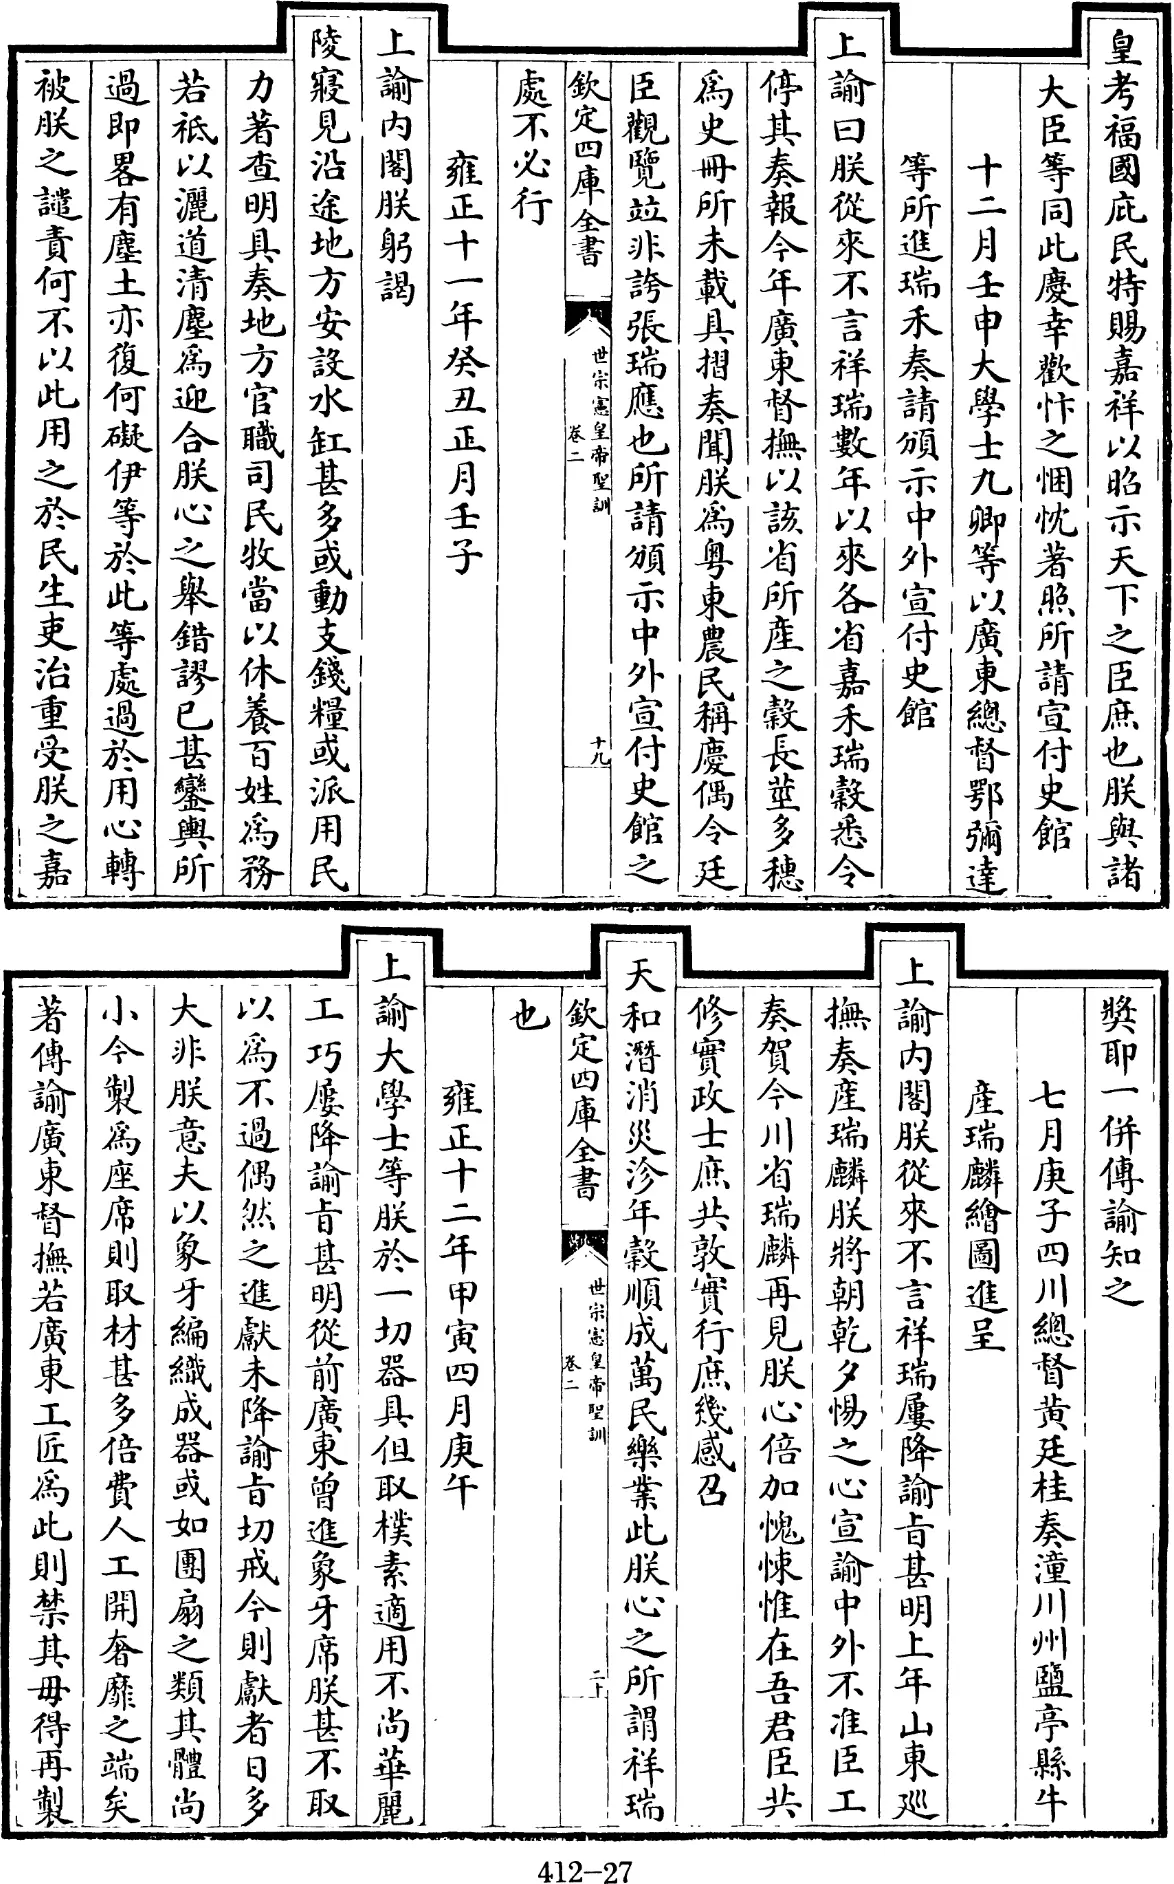 皇考福國庇民特賜嘉祥以昭示天下之臣庶也朕與諸
大臣等同此慶幸歡忭之悃忱著照所請宣付史館
十二月壬申大學士九卿等以廣東總督鄂彌達
等所進瑞禾奏請頒示中外宣付史館
上諭曰朕從來不言祥瑞數年以來各省嘉禾瑞穀悉令
停其奏報今年廣東督撫以該省所產之穀長莖多穗
為史冊所未載具摺奏聞朕為粵東農民稱慶偶令廷
臣觀覽竝非誇張瑞應也所請頒示中外宣付史館之
欽定四庫全書
世宗憲皇帝聖訓
卷二
十九
處不必行
雍正十一年癸丑正月壬子
上諭內閣朕躬謁
陵寢見沿途地方安設水缸甚多或動支錢糧或派用民
力著查明具奏地方官職司民牧當以休養百姓為務
若祗以灑道清塵為迎合朕心之舉錯謬已甚鑾輿所
過即畧有塵土亦復何礙伊等於此等處過於用心轉
被朕之譴責何不以此用之於民生吏治重受朕之嘉
獎耶一併傳諭知之
七月庚子四川總督黃廷桂奏潼川州鹽亭縣牛
產瑞麟繪圖進呈
上諭內閣朕從來不言祥瑞屢降諭旨甚明上年山東巡
撫奏產瑞麟朕將朝乾夕惕之心宣諭中外不准臣工
奏賀今川省瑞麟再見朕心倍加愧悚惟在吾君臣共
修實政士庶共敦實行庶幾感召
天和潛消災沴年穀順成萬民樂業此朕心之所謂祥瑞
欽定四庫全書
世宗憲皇帝聖訓
卷二
二十
也
雍正十二年甲寅四月庚午
上諭大學士等朕於一切器具但取樸素適用不尚華麗
工巧屢降諭旨甚明從前廣東曾進象牙席朕甚不取
以為不過偶然之進獻未降諭旨切戒今則獻者日多
大非朕意夫以象牙編織成器或如團扇之類其體尚
小今製為座席則取材甚多倍費人工開奢靡之端矣
著傳諭廣東督撫若廣東工匠為此則禁其毋得再製
412-27